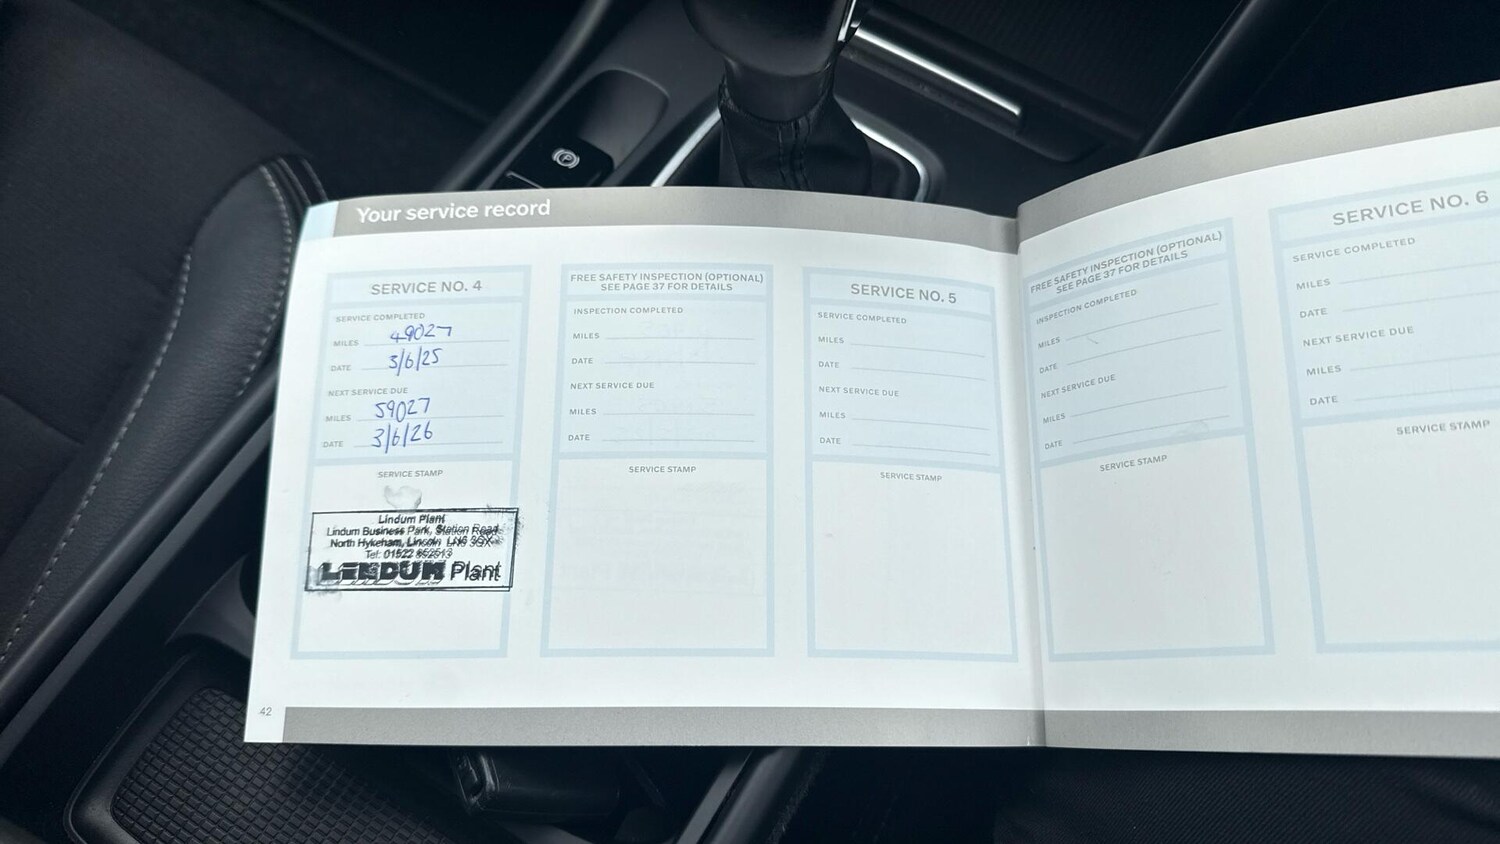 Your service record
SERVICE NO. 4
SERVICE COMPLETED
MILES 49027
DATE 3/6/25
NEXT SERVICE DUE
MILES 59027
DATE 3/6/26
SERVICE STAMP
Lindum Plant
Lindum Business Park, Station Road
North Hykeham, Lincoln LN6 3QX
Tel: 01522
LINDUM Plant
FREE SAFETY INSPECTION (OPTIONAL)
SEE PAGE 37 FOR DETAILS
INSPECTION COMPLETED
MILES
DATE
NEXT SERVICE DUE
MILES
DATE
SERVICE STAMP
SERVICE NO. 5
SERVICE COMPLETED
MILES
DATE
NEXT SERVICE DUE
MILES
DATE
SERVICE STAMP
FREE SAFETY INSPECTION (OPTIONAL)
SEE PAGE 37 FOR DETAILS
INSPECTION COMPLETED
MILES
DATE
NEXT SERVICE DUE
MILES
DATE
SERVICE STAMP
SERVICE NO. 6
SERVICE COMPLETED
MILES
DATE
NEXT SERVICE DUE
MILES
DATE
SERVICE STAMP
42